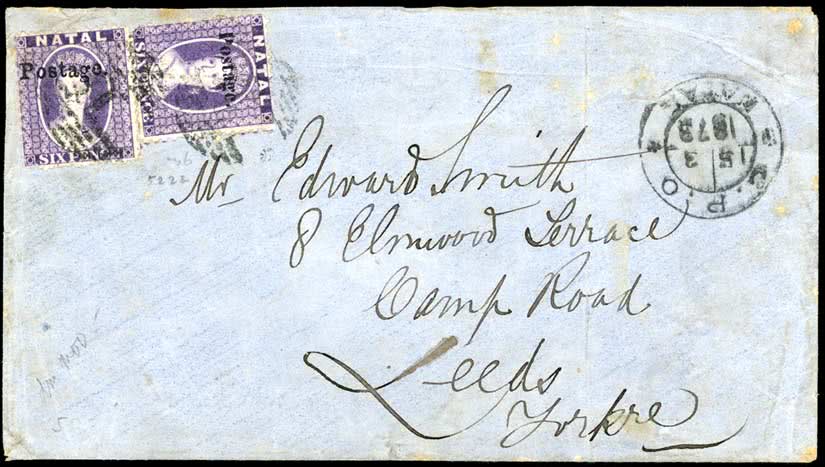 NATAL
Postage.
SIXPENCE
NATAL
Postage.
SIXPENCE
G.P.O
NATAL
15 3
1873
5222
Mr Edward Smith
8 Elmwood Terrace
Camp Road
Leeds
Yorkre